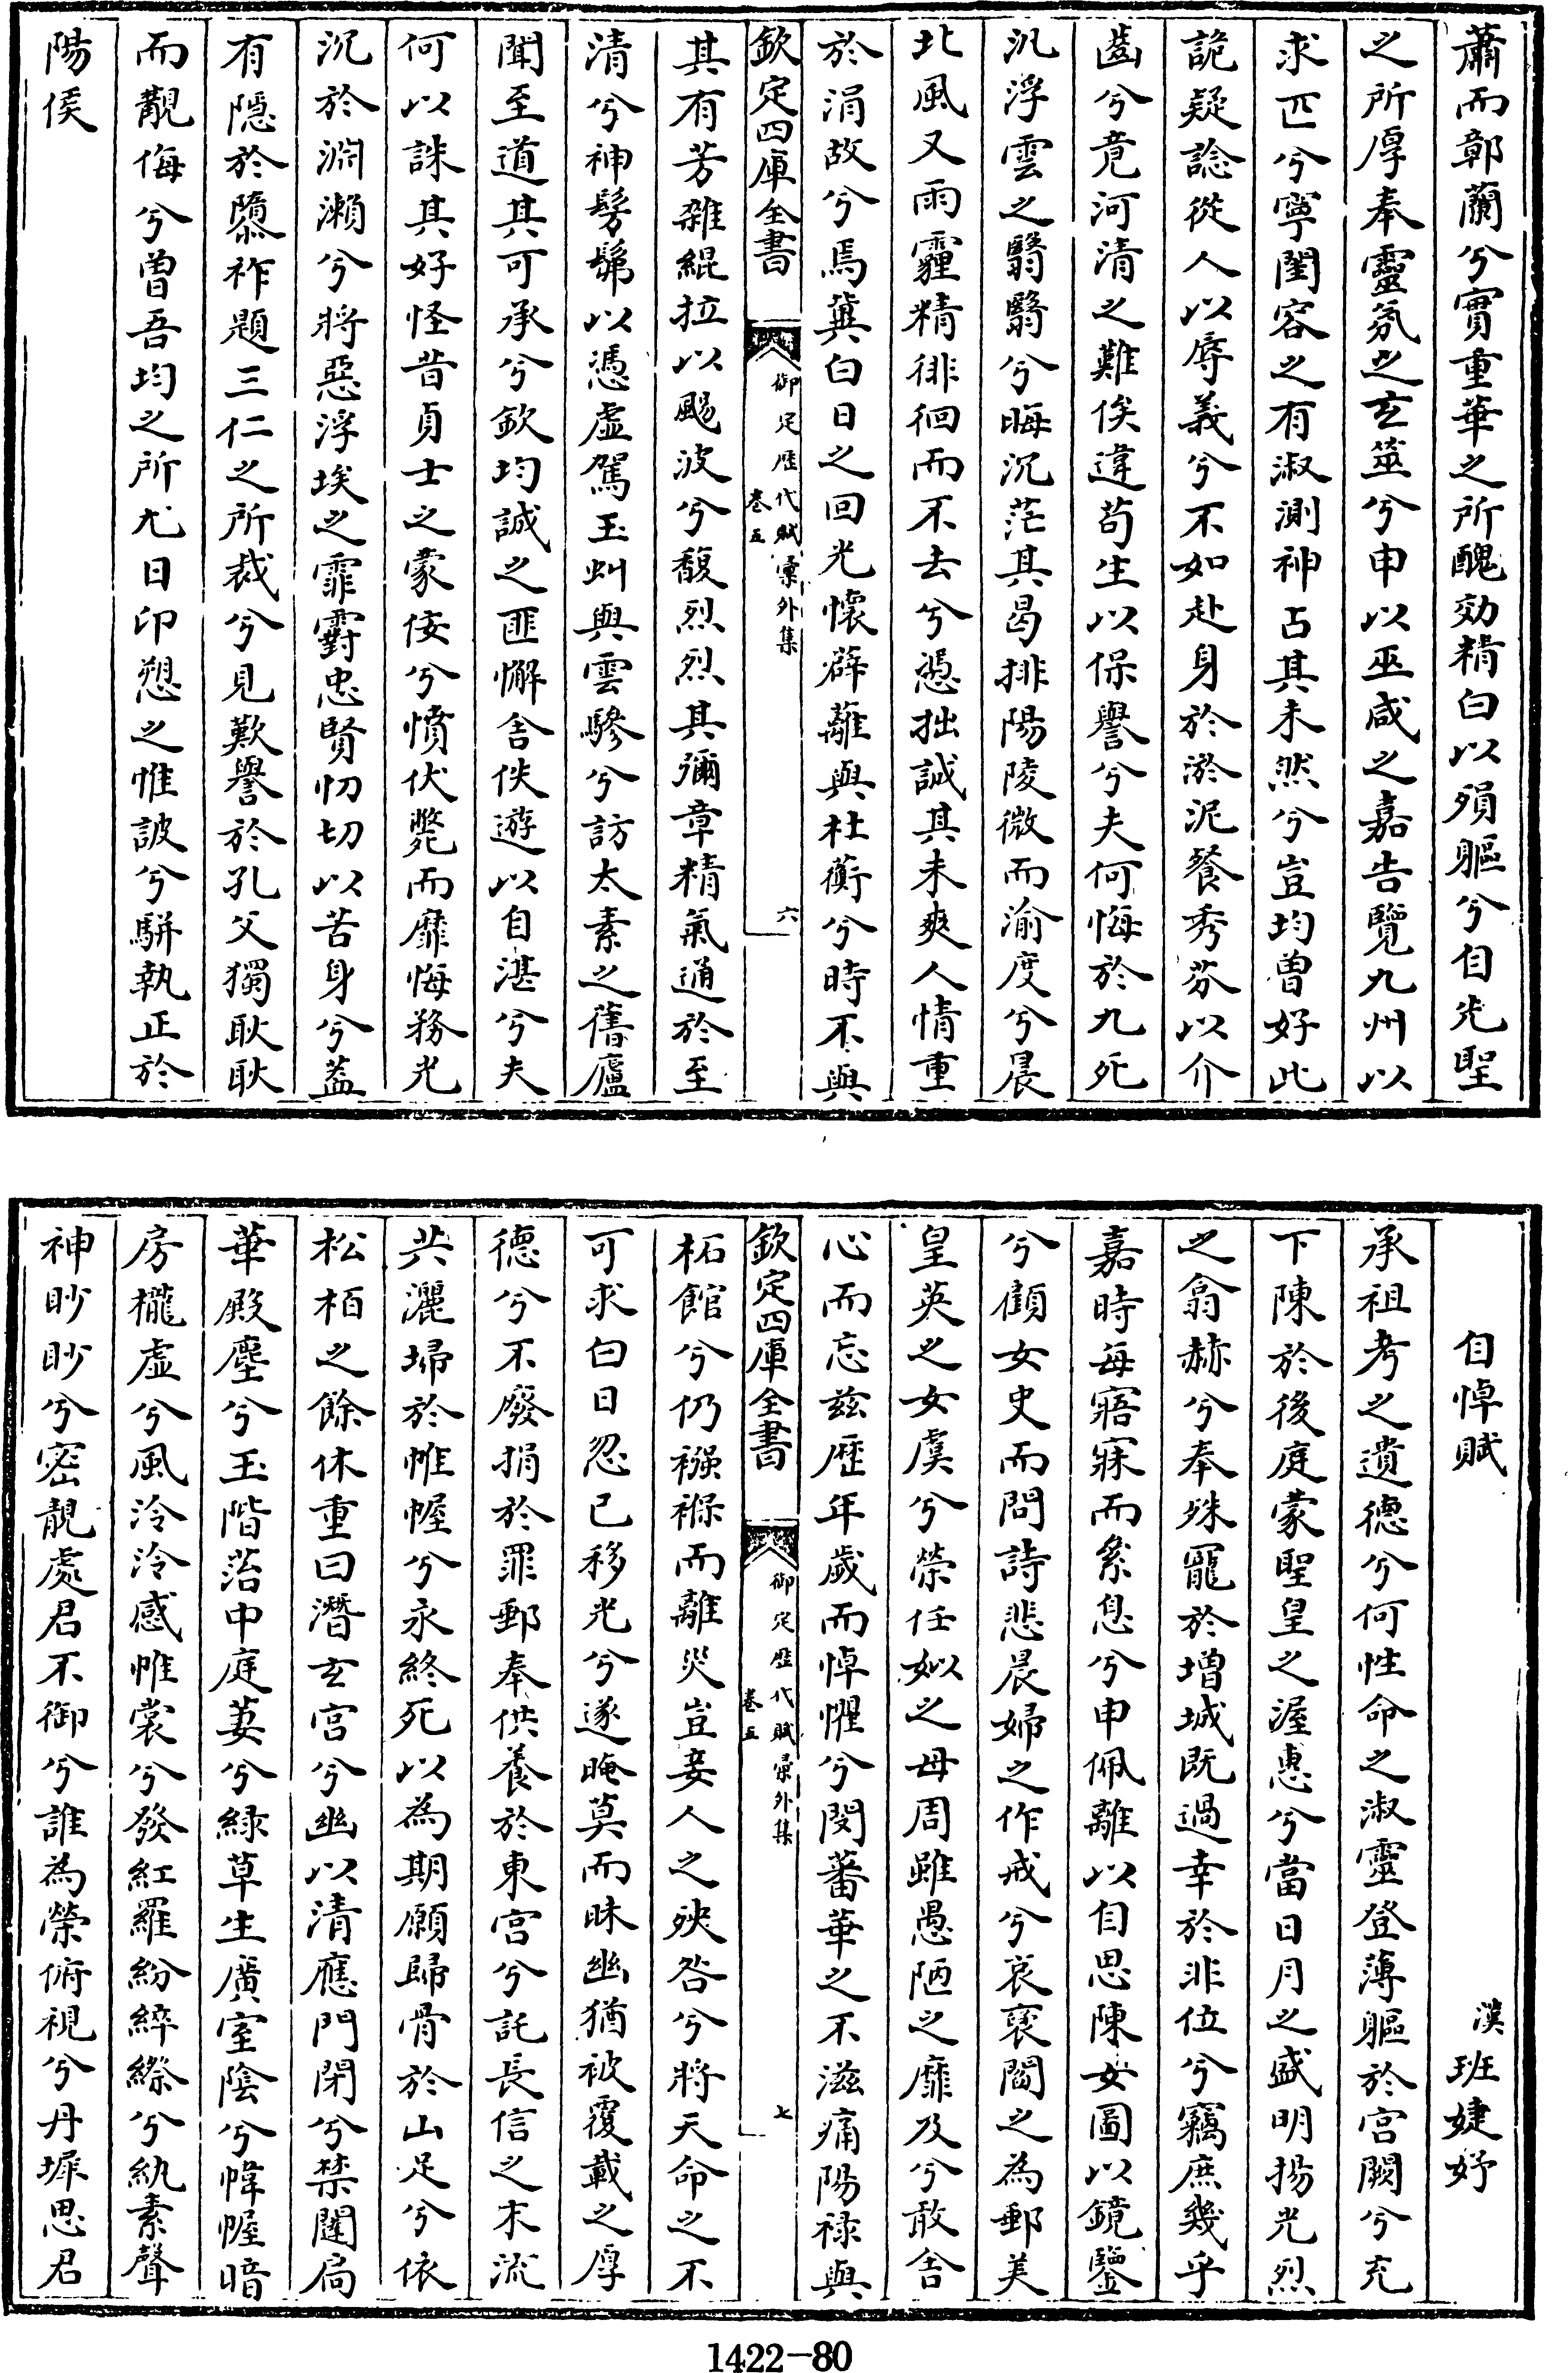 蕭而鄣蘭兮實重華之所醜効精白以殞軀兮自先聖
之所厚奉靈氛之玄筮兮申以巫咸之嘉告覽九州以
求匹兮寧閨容之有淑測神占其未然兮豈均曽好此
詭疑諗從人以辱義兮不如赴身於淤泥餐秀芬以介
齒兮竟河清之難俟違苟生以保譽兮夫何悔於九死
汎浮雲之翳翳兮晦沉茫其曷排陽陵微而渝度兮晨
北風又雨霾精徘徊而不去兮慿拙誠其未爽人情重
於涓故兮焉冀白日之回光懷辟蘺與杜蘅兮時不與
欽定四庫全書
御定歴代賦彙外集
卷五
六
其有芳雜緄拉以颺波兮馥烈烈其彌章精氣通於至
清兮神髣髴以憑虛駕玉虯與雲驂兮訪太素之舊廬
聞至道其可承兮欽均誠之匪懈舍佚遊以自湛兮夫
何以誅其好怪昔貞士之蒙佞兮憤伏斃而靡悔務光
沉於淵瀨兮將惡浮埃之霏霨忠賢忉切以苦身兮葢
有隱於隳祚題三仁之所裁兮見歎譽於孔父獨耿耿
而覯侮兮曽吾均之所尤日卬愬之惟詖兮駢執正於
陽侯
自悼賦
漢班婕妤
承祖考之遺德兮何性命之淑靈登薄軀於宫闕兮充
下陳於後庭蒙聖皇之渥恵兮當日月之盛明揚光烈
之翕赫兮奉殊寵於增城既過幸於非位兮竊庶幾乎
嘉時每寤寐而絫息兮申佩離以自思陳女圖以鏡鑒
兮顧女史而問詩悲晨婦之作戒兮哀褒閻之為郵美
皇英之女虞兮榮任姒之母周雖愚陋之靡及兮敢舍
心而忘兹歴年歲而悼懼兮閔蕃華之不滋痛陽禄與
欽定四庫全書
御定歴代賦彙外集
卷五
七
柘館兮仍襁褓而離災豈妾人之殃咎兮將天命之不
可求白日忽已移光兮遂晻莫而昧幽猶被覆載之厚
德兮不廢捐於罪郵奉供養於東宫兮託長信之末流
共灑埽於帷幄兮永終死以為期願歸骨於山足兮依
松栢之餘休重曰潛玄宫兮幽以清應門閉兮禁闥扃
華殿塵兮玉階菭中庭萋兮緑草生廣室陰兮幃幄暗
房櫳虚兮風泠泠感帷裳兮發紅羅紛綷縩兮紈素聲
神眇眇兮密靚處君不御兮誰為榮俯視兮丹墀思君
1422-80